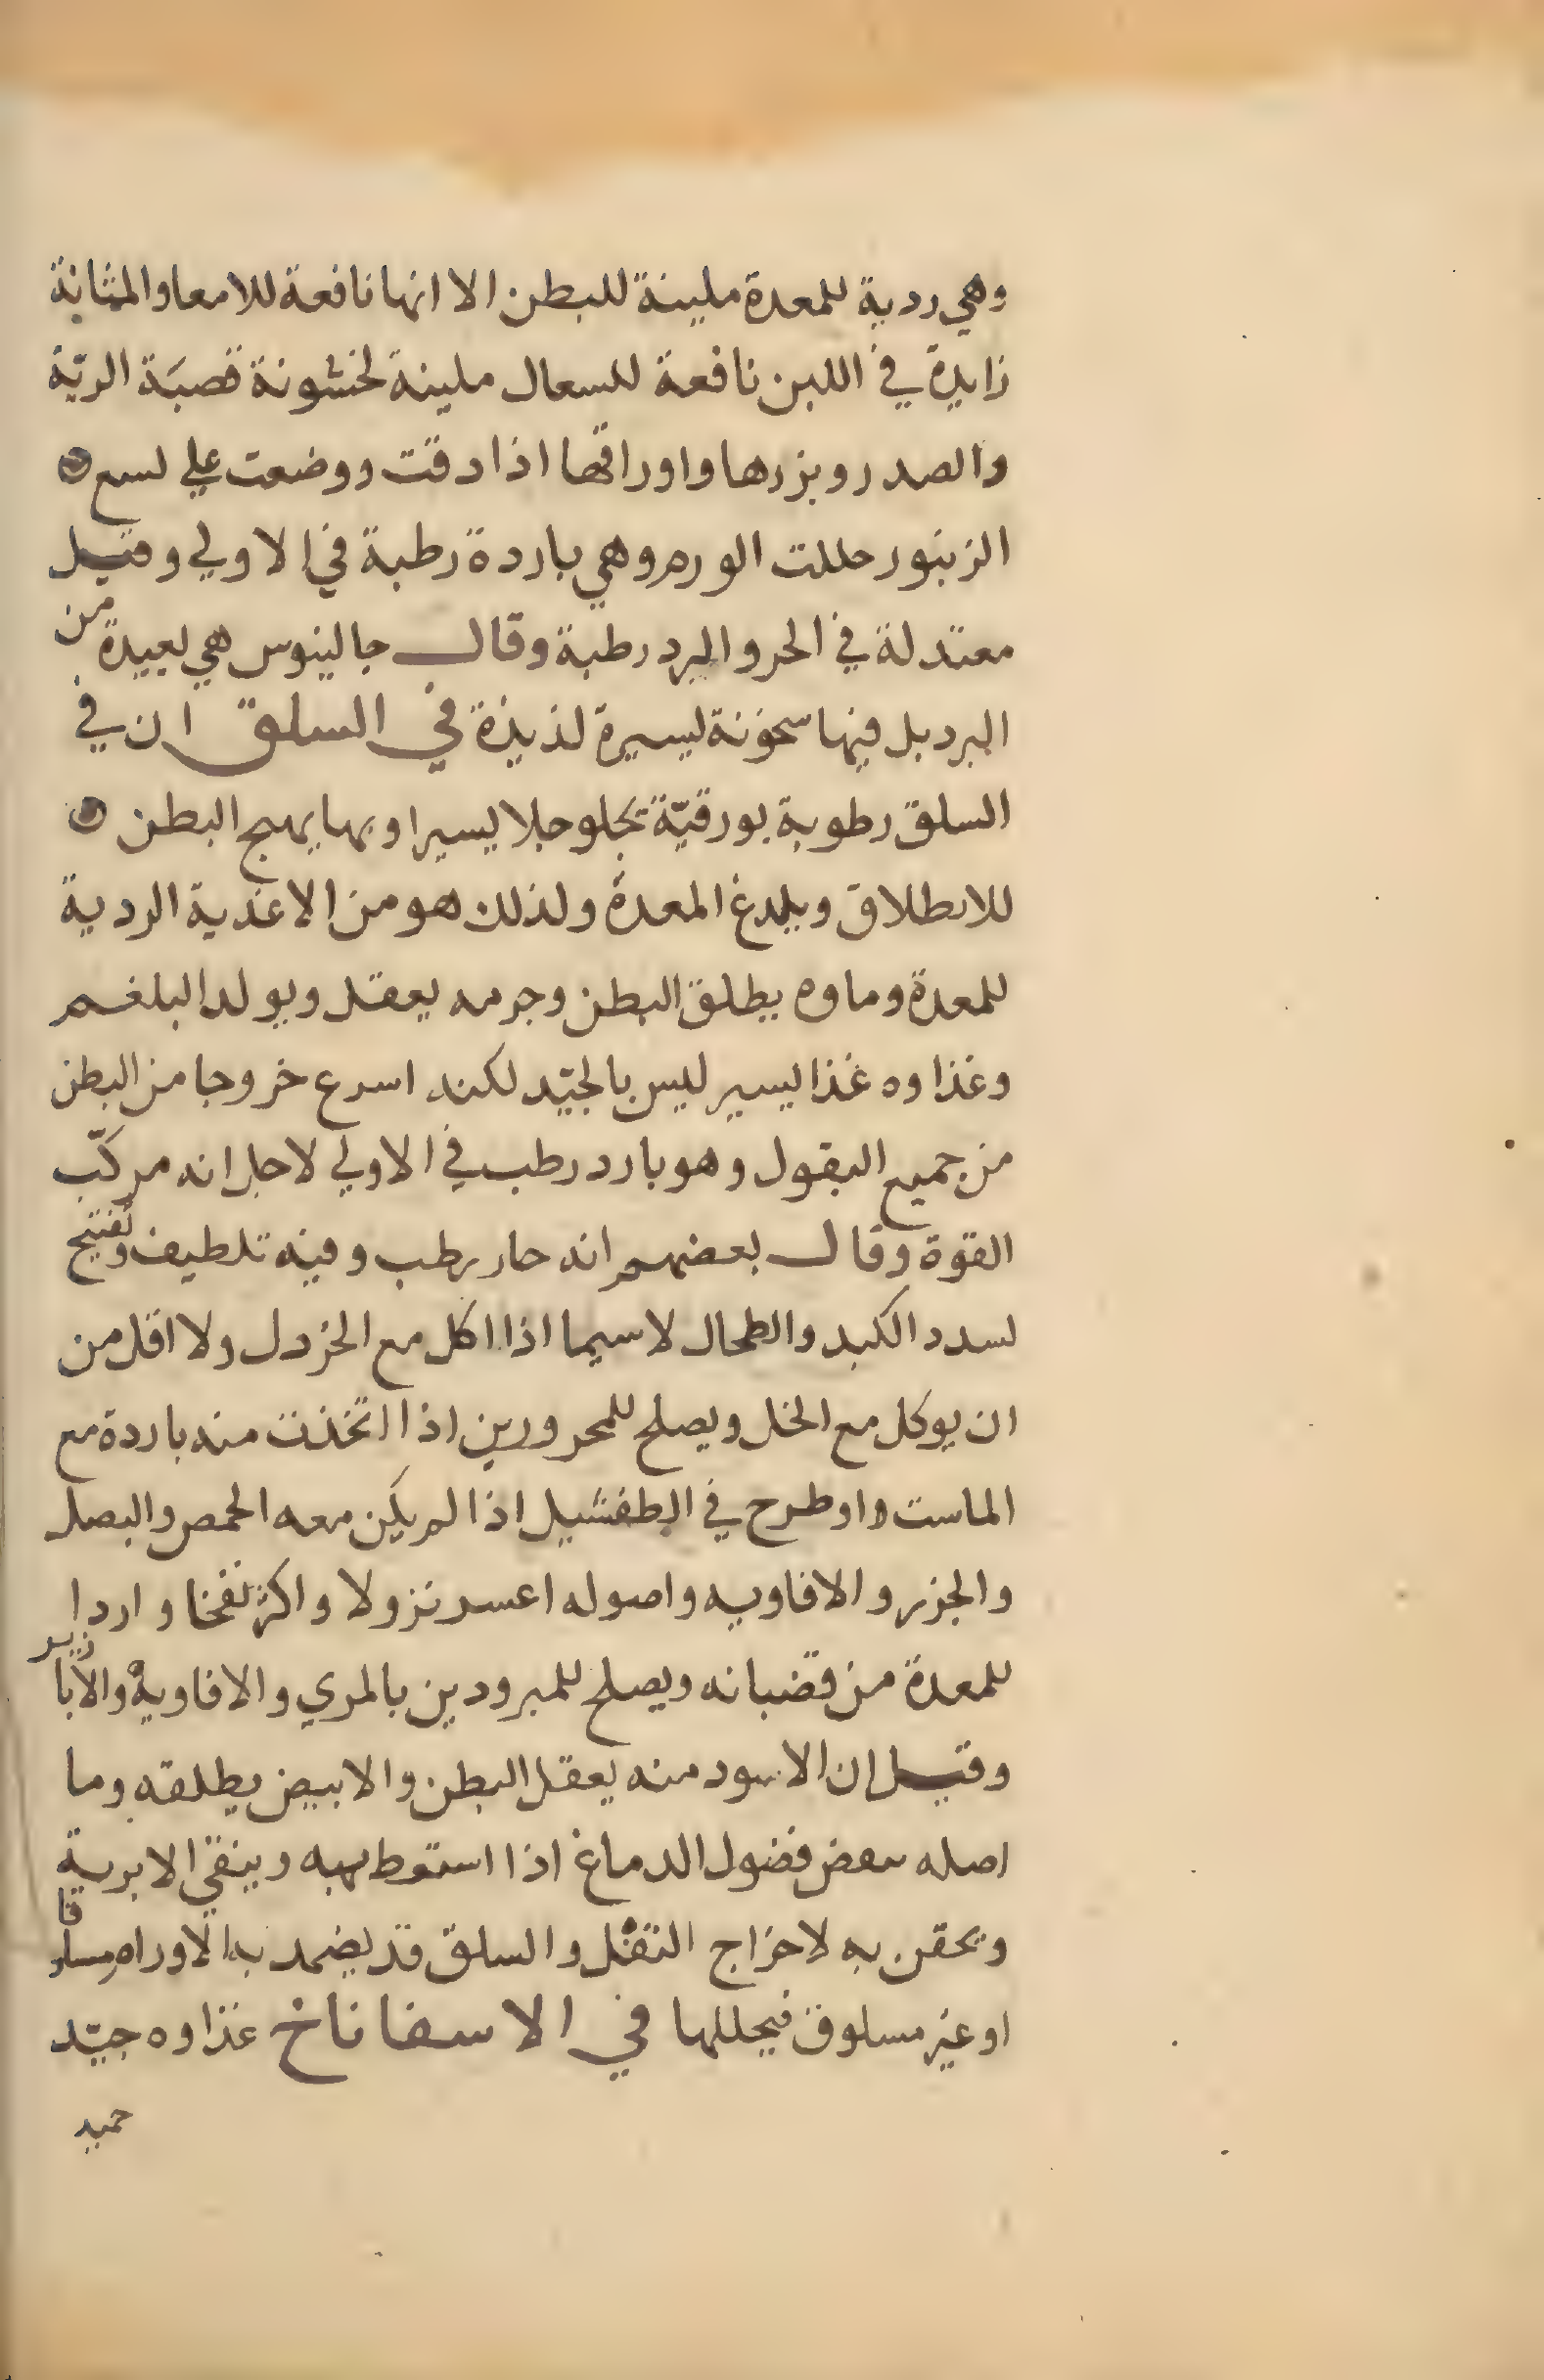 وهي ردية للمعدة ملينة للبطن الا انها نافعة للامعا والمثانة
زايدة في اللبن نافعة للسعال ملينة لخشونة قصبَة الريّة
والصدر وبزرها واوراقها اذا دقت ووضعت علي لسع
الزنبور حللت الورم وهي باردة رطبة في الاولي وقيل
معتدلة في الحر والبرد رطبة وقال جالينوس هي بعيدة من
البرد بل فيها سخونة يسيرة لذيذة في السلق ان في
السلق رطوبة بورقيّة تجلو جلا يسيرا وبها يهيج البطن
للانطلاق ويلدغ المعدة ولذلك هو من الاغذية الردية
للمعدة وماوه يطلق البطن وجرمه يعقل ويولد البلغم
وغذاوه غذا يسير ليس بالجيّد لكنه اسرع خروجا من البطن
من جميع البقول وهو بارد رطب في الاولي لاجل انه مركّب
القوة وقال بعضهم انه حار رطب وفيه تلطيف وتفتيح
لسدد الكبد والطحال لاسيما اذا اكل مع الخردل ولا اقل من
ان يوكل مع الخل ويصلح للمحرورين اذا اتخذت منه باردة مع
الماست واو طرح في الطفشيل اذا لم يكن معه الحمص والبصل
والجزر والافاويه واصوله اعسر نزولا واكثر نفخا واردا
للمعدة من قضبانه ويصلح للمبرودين بالمري والافاويه والابازير
وقيل ان الاسود منه يعقل البطن والابيض يطلقه وما
اصله فضول الدماغ اذا استعط به وينقي الابرية
ويحقن به لاخراج الثفل والسلق قد يضمد به الاورام مسلوقا
او غير مسلوق فيحللها في الاسفاناخ غذاوه جيّد